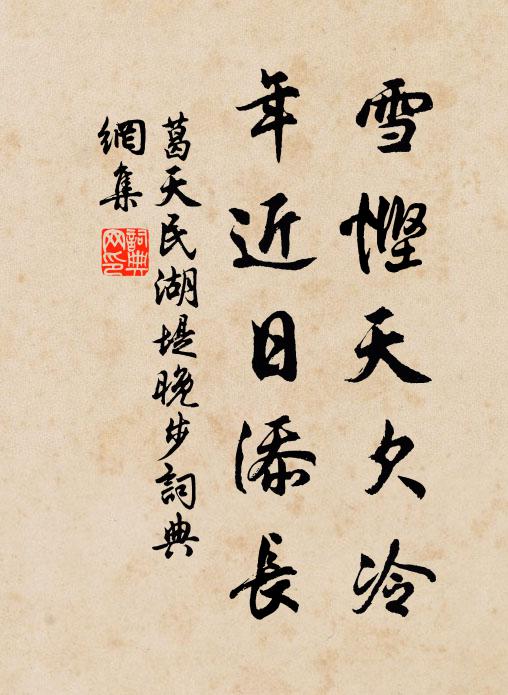 雪慳天欠冷
年近日添長
葛天民湖堤晚步詞典
網集
詞典
网印